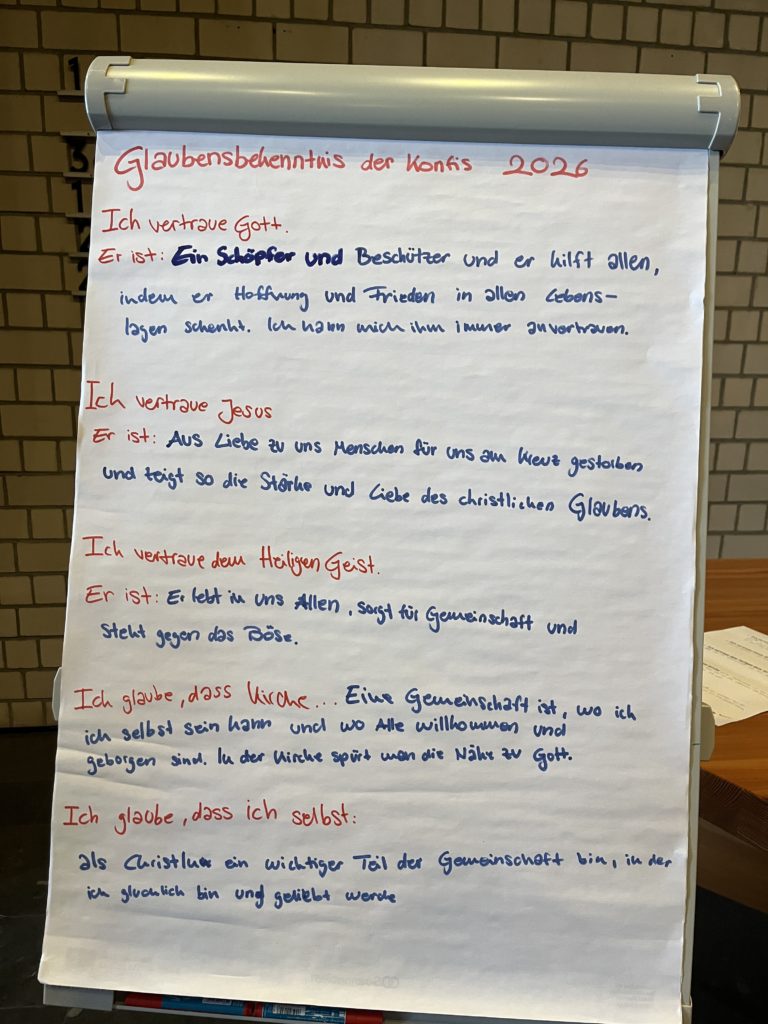 Glaubensbekenntnis der Konfis 2026
Ich vertraue Gott.
Er ist: Ein Schöpfer und Beschützer und er hilft allen,
indem er Hoffnung und Frieden in allen Lebens-
lagen schenkt. Ich kann mich ihm immer anvertrauen.
Ich vertraue Jesus
Er ist: Aus Liebe zu uns Menschen für uns am Kreuz gestorben
und zeigt so die Stärke und Liebe des christlichen Glaubens.
Ich vertraue dem Heiligen Geist.
Er ist: Er lebt in uns Allen, sorgt für Gemeinschaft und
steht gegen das Böse.
Ich glaube, dass Kirche... Eine Gemeinschaft ist, wo ich
ich selbst sein kann und wo Alle willkommen und
geborgen sind. In der Kirche spürt man die Nähe zu Gott.
Ich glaube, dass ich selbst:
als ein wichtiger Teil der Gemeinschaft bin, in der
ich glücklich bin und geliebt werde